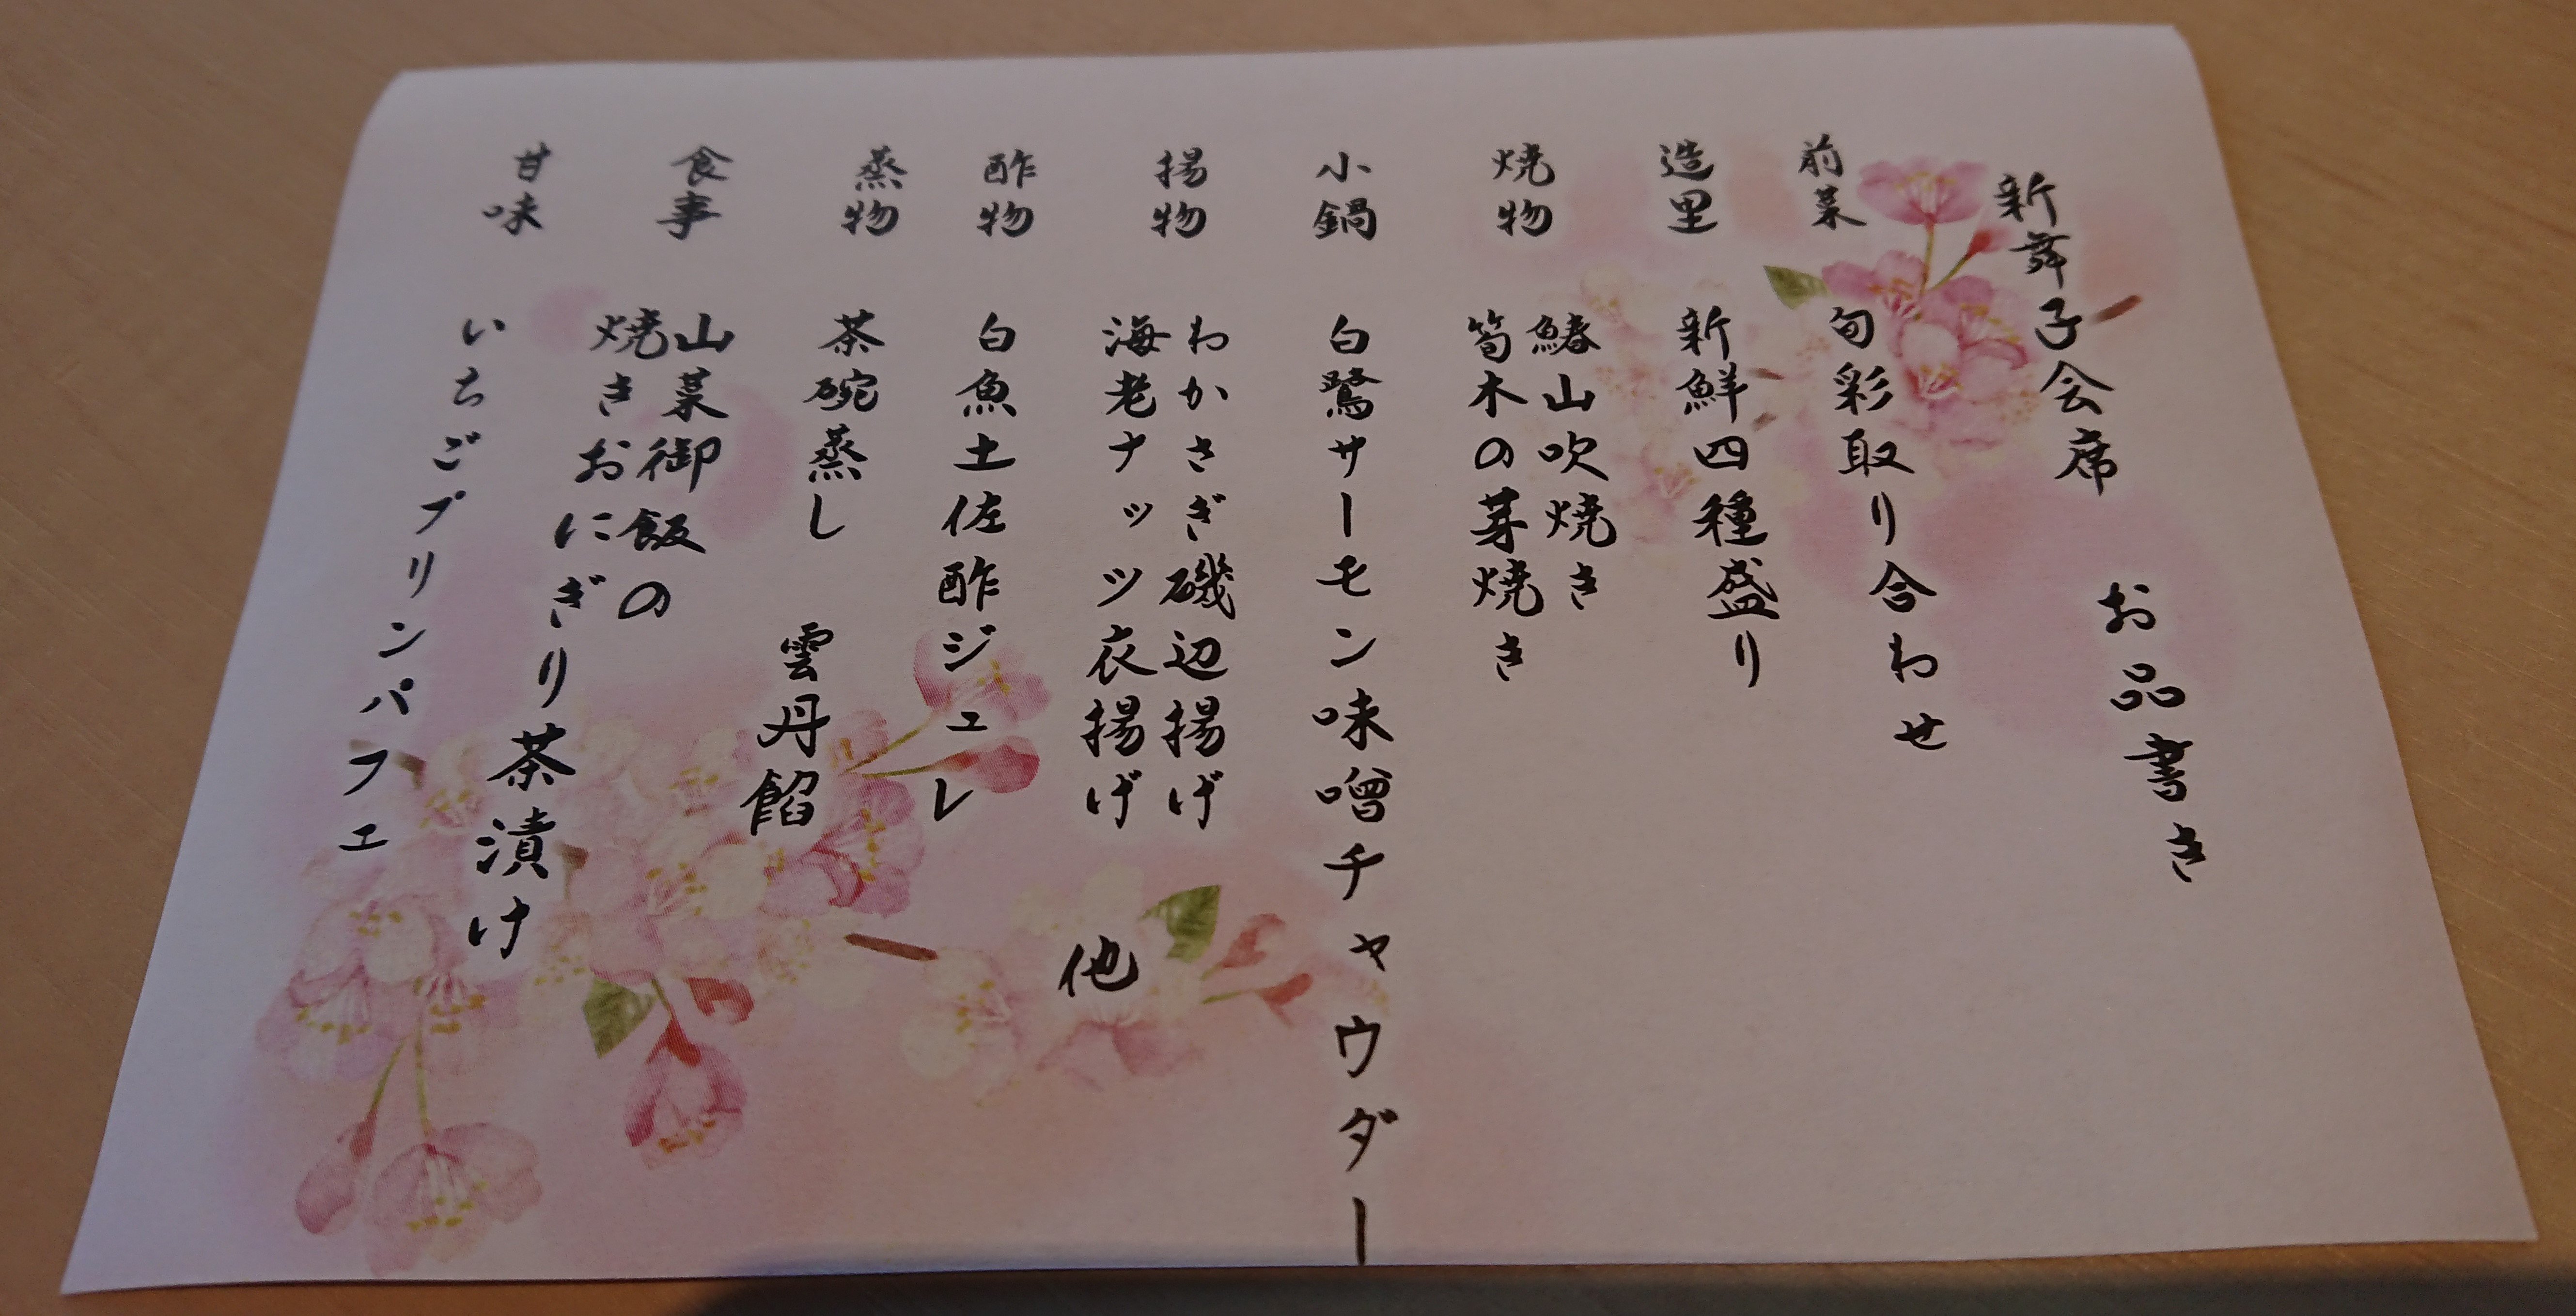 新舞子会席　お品書き
前菜　旬彩取り合わせ
造里　新鮮四種盛り
焼物　鰆山吹焼き
筍木の芽焼き
小鍋　白鷺サーモン味噌チャウダー
揚物　わかさぎ磯辺揚げ
海老ナッツ衣揚げ　他
酢物　白魚土佐酢ジュレ
蒸物　茶碗蒸し　雲丹餡
食事　山菜御飯の
焼きおにぎり茶漬け
甘味　いちごプリンパフェ